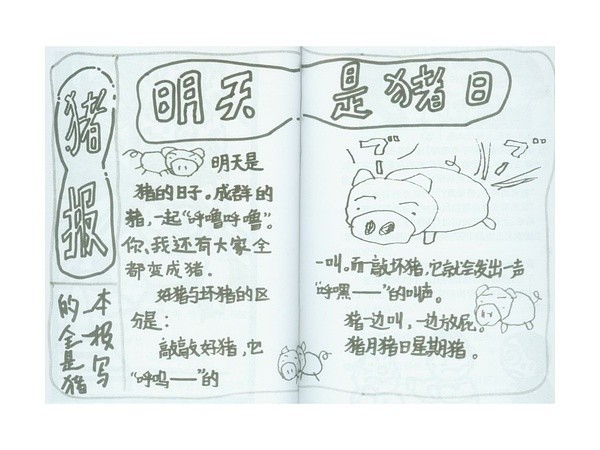 猪报
本报写
的全是猪
明天是猪日
明天是
猪的日子。成群的
猪，一起“呼噜呼噜”。
你、我还有大家全
都变成猪。
好猪与坏猪的区
分是：
敲敲好猪，它
“呼呜——”的
ブーン
ブーン
一叫。而敲坏猪，它就会发出一声
“呼嘿——”的叫声。
猪一边叫，一边放屁。
猪月猪日星期猪。